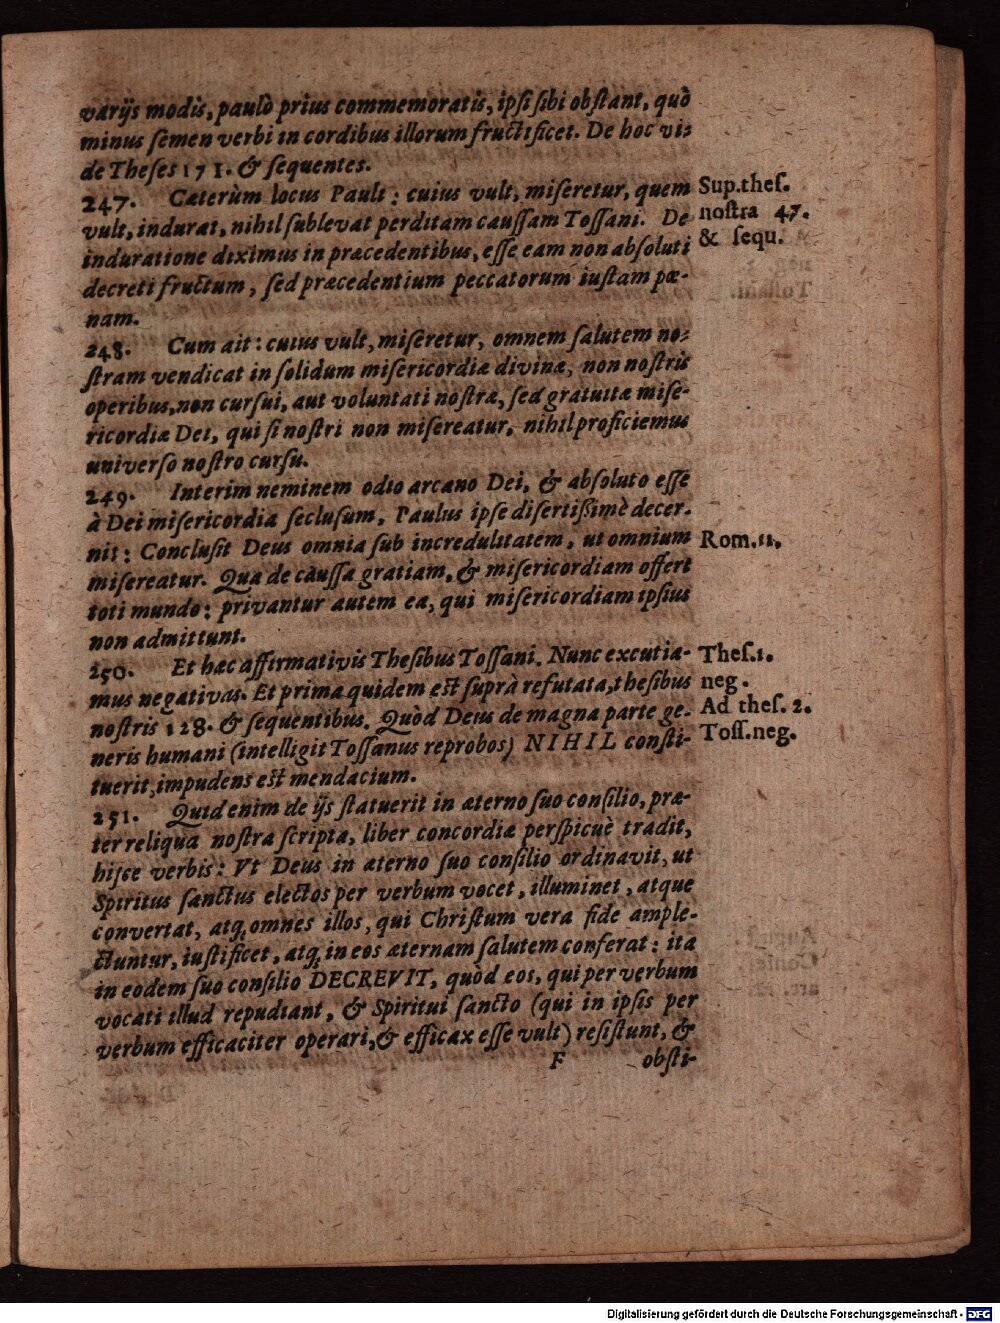 varijs modis, paulò prius commemoratis, ipsi sibi obstant, quò
minus semen verbi in cordibus illorum fructificet. De hoc vi-
de Theses 171. & sequentes.
247. Cæterùm locus Pauli: cuius vult, miseretur, quem
vult, indurat, nihil sublevat perditam caussam Tossani. De
induratione diximus in præcedentibus, esse eam non absoluti
decreti fructum, sed præcedentium peccatorum iustam pœ-
nam.
Sup.thes.
nostra 47.
& sequ.
248. Cum ait: cuius vult, miseretur, omnem salutem no-
stram vendicat in solidum misericordiæ divinæ, non nostris
operibus, non cursui, aut voluntati nostræ, sed gratuitæ mise-
ricordiæ Dei, qui si nostri non misereatur, nihil proficiemus
universo nostro cursu.
249. Interim neminem odio arcano Dei, & absoluto esse
à Dei misericordia seclusum, Paulus ipse disertißimè decer-
nit: Conclusit Deus omnia sub incredulitatem, ut omnium
misereatur. Qua de caussa gratiam, & misericordiam offert
toti mundo: privantur autem ea, qui misericordiam ipsius
non admittunt.
Rom.11.
250. Et hæc affirmativis Thesibus Tossani. Nunc excutia-
mus negativas. Et prima quidem est suprà refutata, thesibus
nostris 128. & sequentibus. Quòd Deus de magna parte ge-
neris humani (intelligit Tossanus reprobos) NIHIL consti-
tuerit, impudens est mendacium.
Thes.1.
neg.
Ad thes. 2.
Toss.neg.
251. Quid enim de ijs statuerit in æterno suo consilio, præ-
ter reliqua nostra scripta, liber concordiæ perspicuè tradit,
hisce verbis: Vt Deus in æterno suo consilio ordinavit, ut
Spiritus sanctus electos per verbum vocet, illuminet, atque
convertat, atq; omnes illos, qui Christum vera fide ample-
ctuntur, iustificet, atq; in eos æternam salutem conferat: ita
in eodem suo consilio DECREVIT, quòd eos, qui per verbum
vocati illud repudiant, & Spiritui sancto (qui in ipsis per
verbum efficaciter operari, & efficax esse vult) resistunt, &
F obsti-
Digitalisierung gefördert durch die Deutsche Forschungsgemeinschaft - DFG